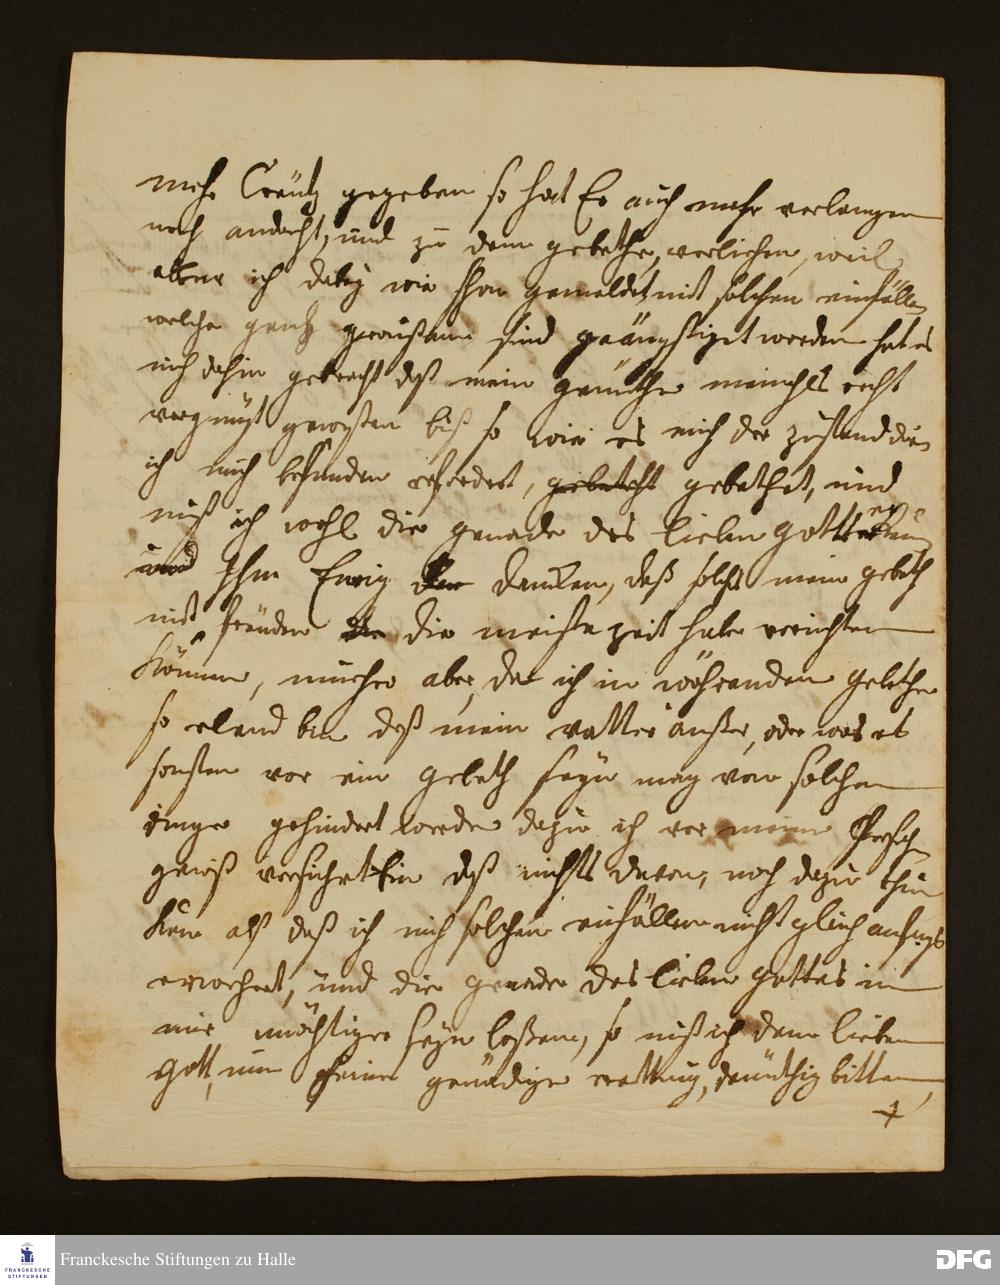 mehr Creütz gegeben so hat Er auch mehr verlangen
nach andacht, und zu dem gebethe, verliehen, weil
aber ich dabey wie schon gemeldet mit solchen einfällen
welche gantz grausam sind geängstiget worden hat es
mich dahin gebracht daß mein gemüthe niemahls recht
vergnügt gewesen biß so wie es mich der zustand dien
ich mich befunden erfordert, gebethet, und
muß ich wohl die genade des lieben Gottes
und Ihm Ewig dancken, daß solches mein gebeth
mit freüden die meiste zeit habe verrichten
können, nunhero aber, da ich in währenden gebethe
so elend bin daß mein vatter unßer, oder was es
sonsten vor ein gebeth seyn mag von solchen
dinge gehindert werde dazu ich vor meine Persohn
gewiß versichert bin daß nichts davon, noch dazu thun
kan als daß ich mich solchen einfällen nicht gleich anfangs
erwehret, und die genade des lieben gottes in
mir mächtiger seyn laßen, so muß ich den lieben
Gott, um seine genädige rettung, demüthig bitten,
Franckesche Stiftungen zu Halle
FRANCKESCHE
STIFTUNGEN
DFG